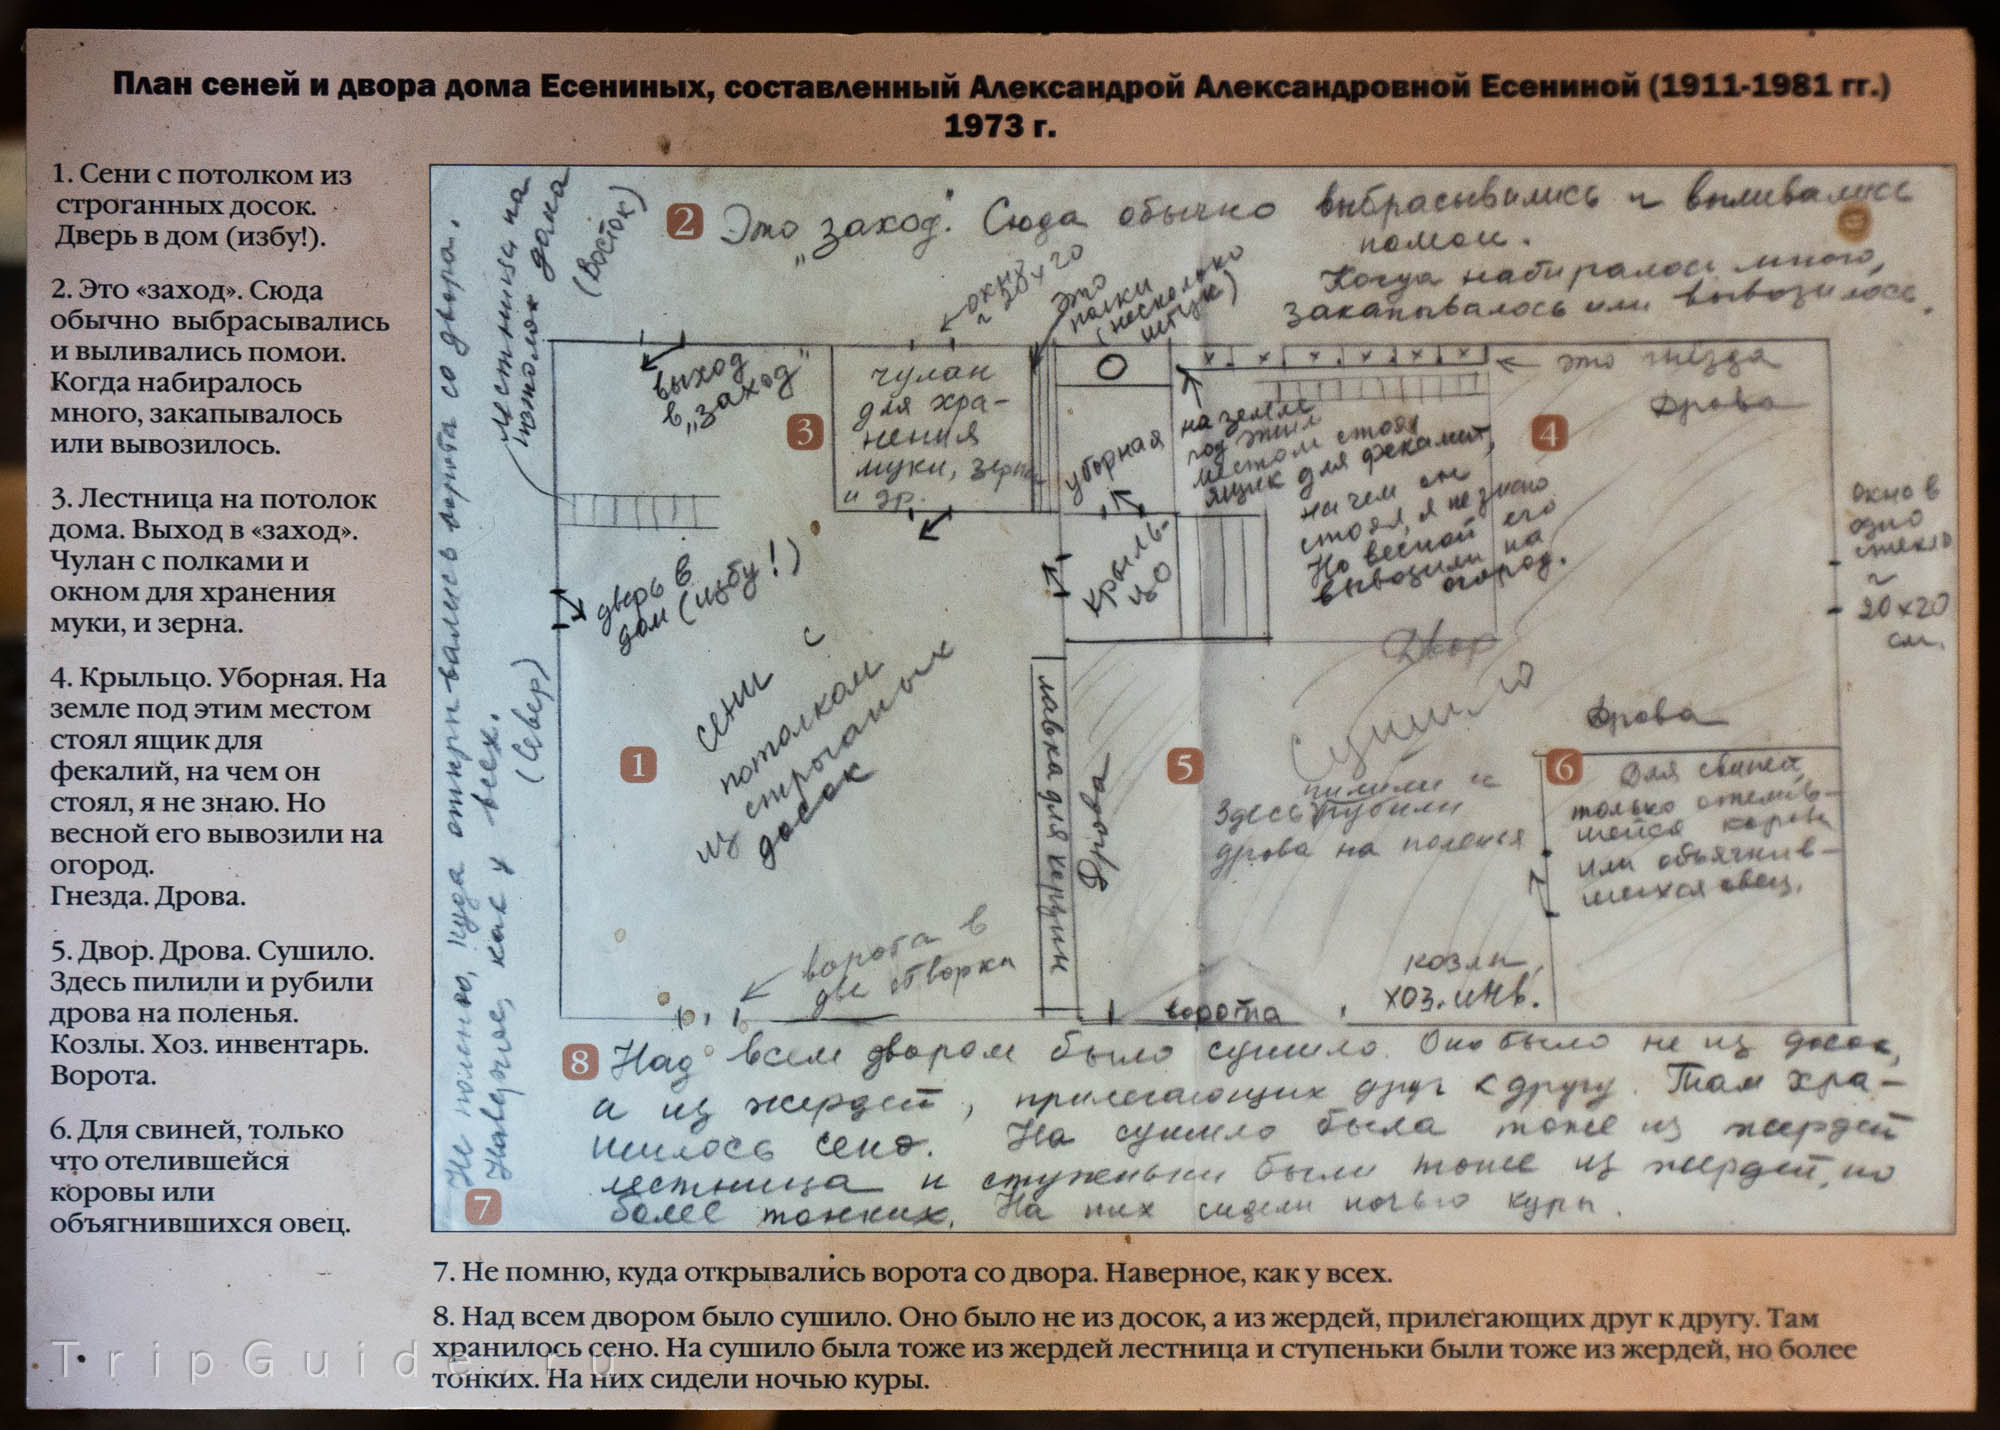 План сеней и двора дома Есениных, составленный Александрой Александровной Есениной (1911-1981 гг.)
1973 г.
1. Сени с потолком из
строганных досок.
Дверь в дом (избу!).
2. Это «заход». Сюда
обычно выбрасывались
и выливались помои.
Когда набиралось
много, закапывалось
или вывозилось.
3. Лестница на потолок
дома. Выход в «заход».
Чулан с полками и
окном для хранения
муки, и зерна.
4. Крыльцо. Уборная. На
земле под этим местом
стоял ящик для
фекалий, на чем он
стоял, я не знаю. Но
весной его вывозили на
огород.
Гнезда. Дрова.
5. Двор. Дрова. Сушило.
Здесь пилили и рубили
дрова на поленья.
Козлы. Хоз. инвентарь.
Ворота.
6. Для свиней, только
что отелившейся
коровы или
объягнившихся овец.
Не помню, куда открывались ворота со двора.
Наверное, как у всех.
(Север)
Лестница на
потолок дома
(Восток)
2 Это „заход". Сюда обычно выбрасывались и выливались
помои.
Когда набиралось много,
закапывалось или вывозилось.
окно
~ 20х20
это
полки
(несколько
штук)
выход
в „заход"
3
чулан
для хра-
нения
муки, зерна
и др.
О
уборная
х х х х х х
это гнёзда
Дрова
4
на земле
под этим
местом стоял
ящик для фекалий,
на чем он
стоял, я не знаю
Но весной его
вывозили на
огород.
окно в
одно
стекло
~
20х20
см.
крыль-
цо
дверь в
дом (избу!)
1
сени с
потолком
из строганых
досок
лавка для корзин
Дрова
Двор
Сушило
5
пилили и
Здесь рубили
дрова на поленья
Дрова
6
Для свиней,
только отелив-
шейся коровы
или объягнив-
шихся овец.
ворота в
две створки
козлы,
хоз. инв.
ворота
8 Над всем двором было сушило. Оно было не из досок,
а из жердей, прилегающих друг к другу. Там хра-
нилось сено. На сушило была тоже из жердей
лестница и ступеньки были тоже из жердей, но
более тонких. На них сидели ночью куры.
7
7. Не помню, куда открывались ворота со двора. Наверное, как у всех.
8. Над всем двором было сушило. Оно было не из досок, а из жердей, прилегающих друг к другу. Там
хранилось сено. На сушило была тоже из жердей лестница и ступеньки были тоже из жердей, но более
тонких. На них сидели ночью куры.
TripGuide.ru